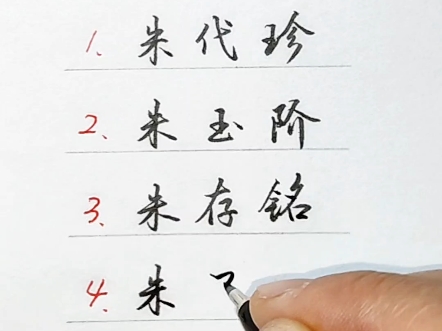 1、朱代珍
2、朱玉阶
3、朱存铭
4、朱